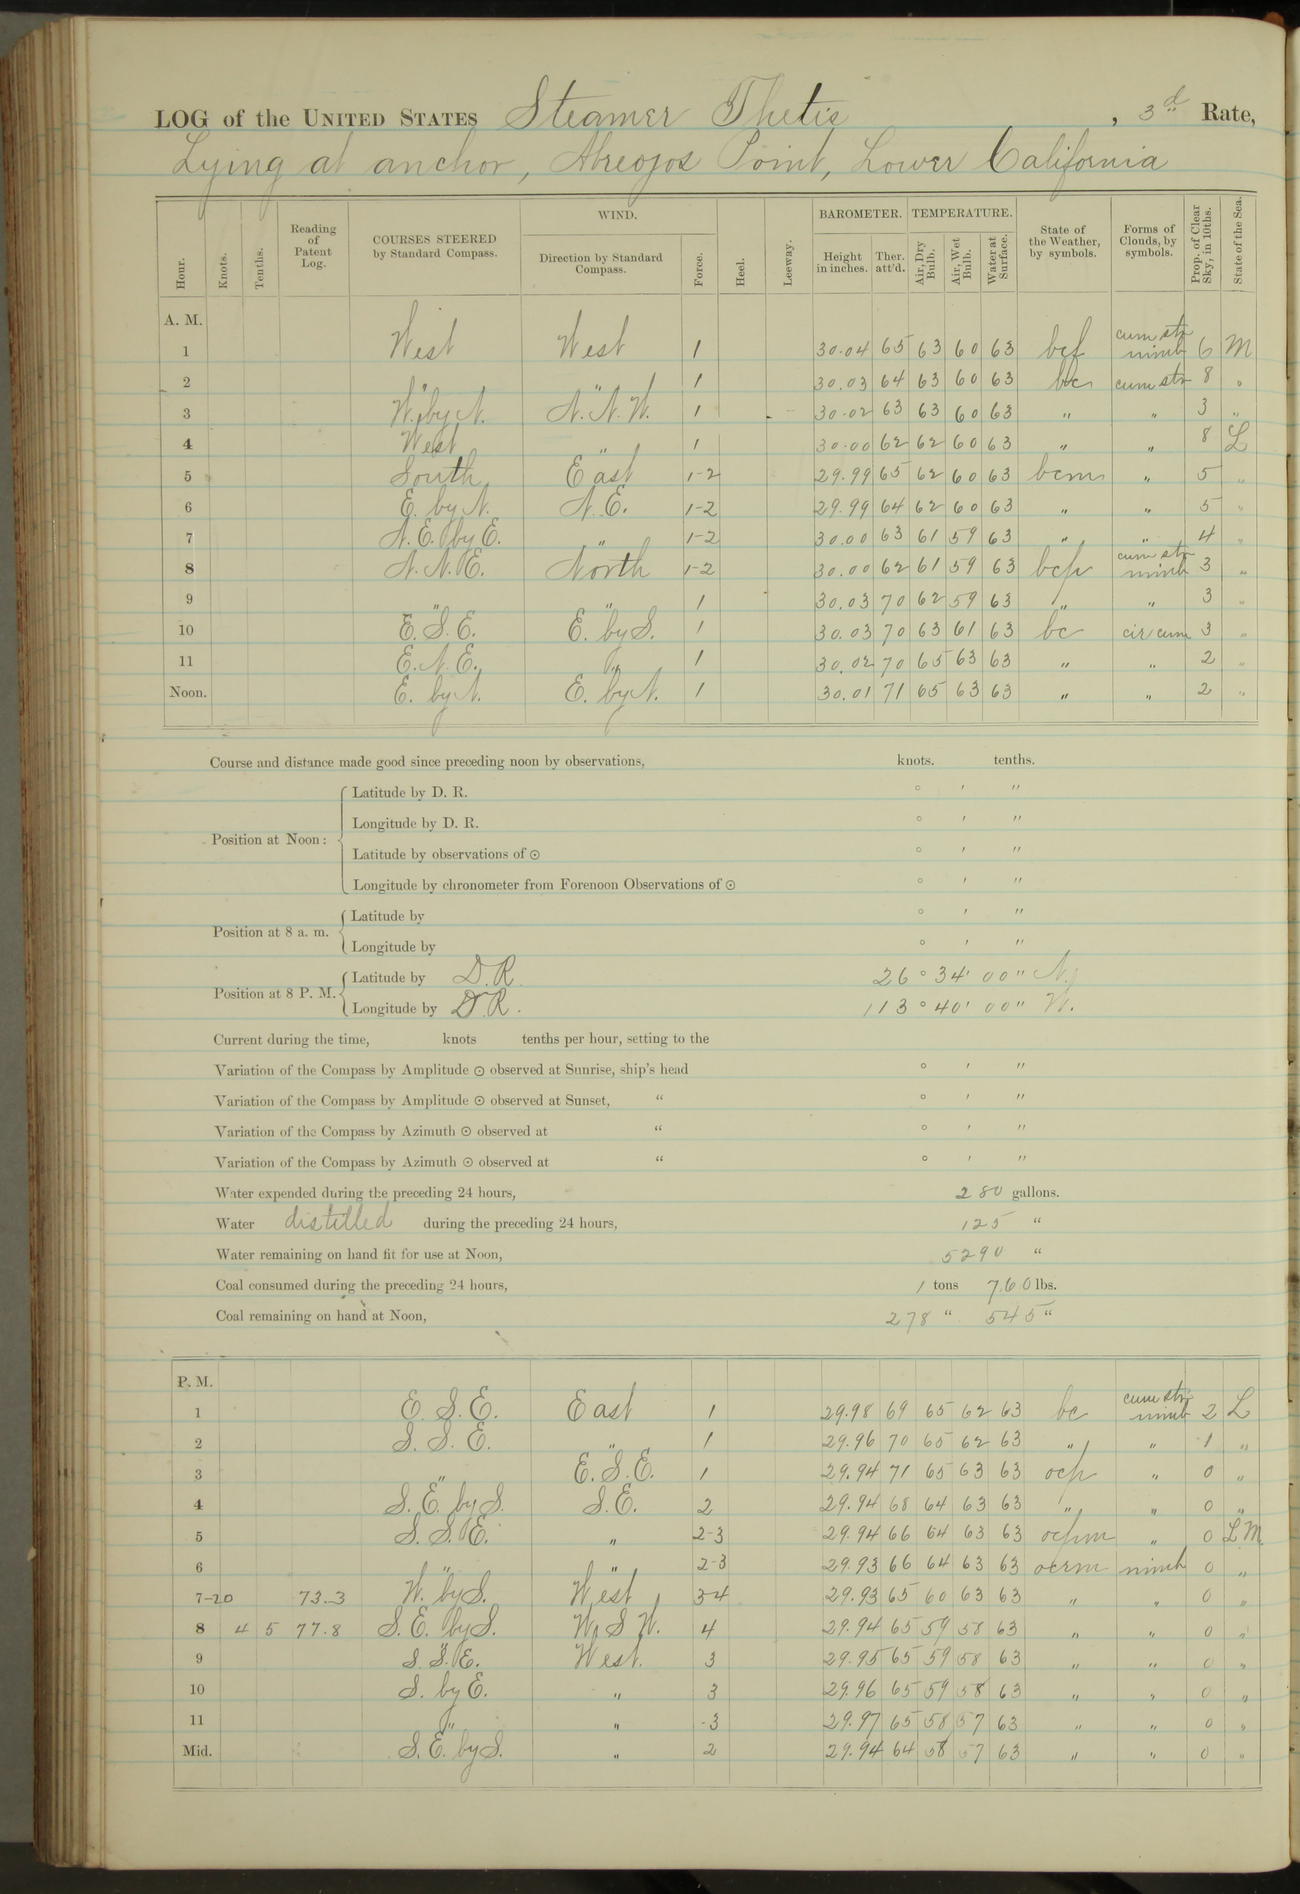 LOG of the UNITED STATES Steamer Thetis , 3d Rate,
Lying at anchor, Abreojos Point, Lower California
Hour. Knots. Tenths. Reading of Patent Log. COURSES STEERED by Standard Compass. WIND. Direction by Standard Compass. Force. Heel. Leeway. BAROMETER. Height in inches. Ther. att'd. TEMPERATURE. Air, Dry Bulb. Air, Wet Bulb. Water at Surface. State of the Weather, by symbols. Forms of Clouds, by symbols. Prop. of Clear Sky, in 10ths. State of the Sea.
A. M.
1 West West 1 30.04 65 63 60 63 bcf cum str nimb 6 M
2 " " 1 30.03 64 63 60 63 bc cum str 8 "
3 W. by N. N. N. W. 1 30.02 63 63 60 63 " " 3 "
4 West " 1 30.00 62 62 60 63 " " 8 L
5 South East 1-2 29.99 65 62 60 63 bcm " 5 "
6 E. by N. N. E. 1-2 29.99 64 62 60 63 " " 5 "
7 N. E. by E. " 1-2 30.00 63 61 59 63 " " 4 "
8 N. N. E. North 1-2 30.00 62 61 59 63 bcp cum str nimb 3 "
9 " " 1 30.03 70 62 59 63 " " 3 "
10 E. S. E. E. by S. 1 30.03 70 63 61 63 bc cir cum 3 "
11 E. N. E. " 1 30.02 70 65 63 63 " " 2 "
Noon. E. by N. E. by N. 1 30.01 71 65 63 63 " " 2 "
Course and distance made good since preceding noon by observations, knots. tenths.
Position at Noon: Latitude by D. R. ° ' "
Longitude by D. R. ° ' "
Latitude by observations of ⊙ ° ' "
Longitude by chronometer from Forenoon Observations of ⊙ ° ' "
Position at 8 a. m. Latitude by ° ' "
Longitude by ° ' "
Position at 8 P. M. Latitude by D.R. 26° 34' 00" N.
Longitude by D.R. 113° 40' 00" W.
Current during the time, knots tenths per hour, setting to the
Variation of the Compass by Amplitude ⊙ observed at Sunrise, ship's head ° ' "
Variation of the Compass by Amplitude ⊙ observed at Sunset, " ° ' "
Variation of the Compass by Azimuth ⊙ observed at " ° ' "
Variation of the Compass by Azimuth ⊙ observed at " ° ' "
Water expended during the preceding 24 hours, 280 gallons.
Water distilled during the preceding 24 hours, 125 "
Water remaining on hand fit for use at Noon, 5290 "
Coal consumed during the preceding 24 hours, 1 tons 760 lbs.
Coal remaining on hand at Noon, 278 " 545 "
P. M.
1 E. S. E. East 1 29.98 69 65 62 63 bc cum str nimb 2 L
2 S. S. E. " 1 29.96 70 65 62 63 " " 1 "
3 " E. S. E. 1 29.94 71 65 63 63 ocp " 0 "
4 S. E. by S. S. E. 2 29.94 68 64 63 63 " " 0 "
5 S. S. E. " 2-3 29.94 66 64 63 63 ocpm " 0 L M
6 " " 2-3 29.93 66 64 63 63 ocrm nimb 0 "
7-20 73.3 W. by S. West 3-4 29.93 65 60 63 63 " " 0 "
8 4 5 77.8 S. E. by S. W. S. W. 4 29.94 65 59 58 63 " " 0 "
9 S. S. E. West. 3 29.95 65 59 58 63 " " 0 "
10 S. by E. " 3 29.96 65 59 58 63 " " 0 "
11 " " 3 29.97 65 58 57 63 " " 0 "
Mid. S. E. by S. " 2 29.94 64 58 57 63 " " 0 "